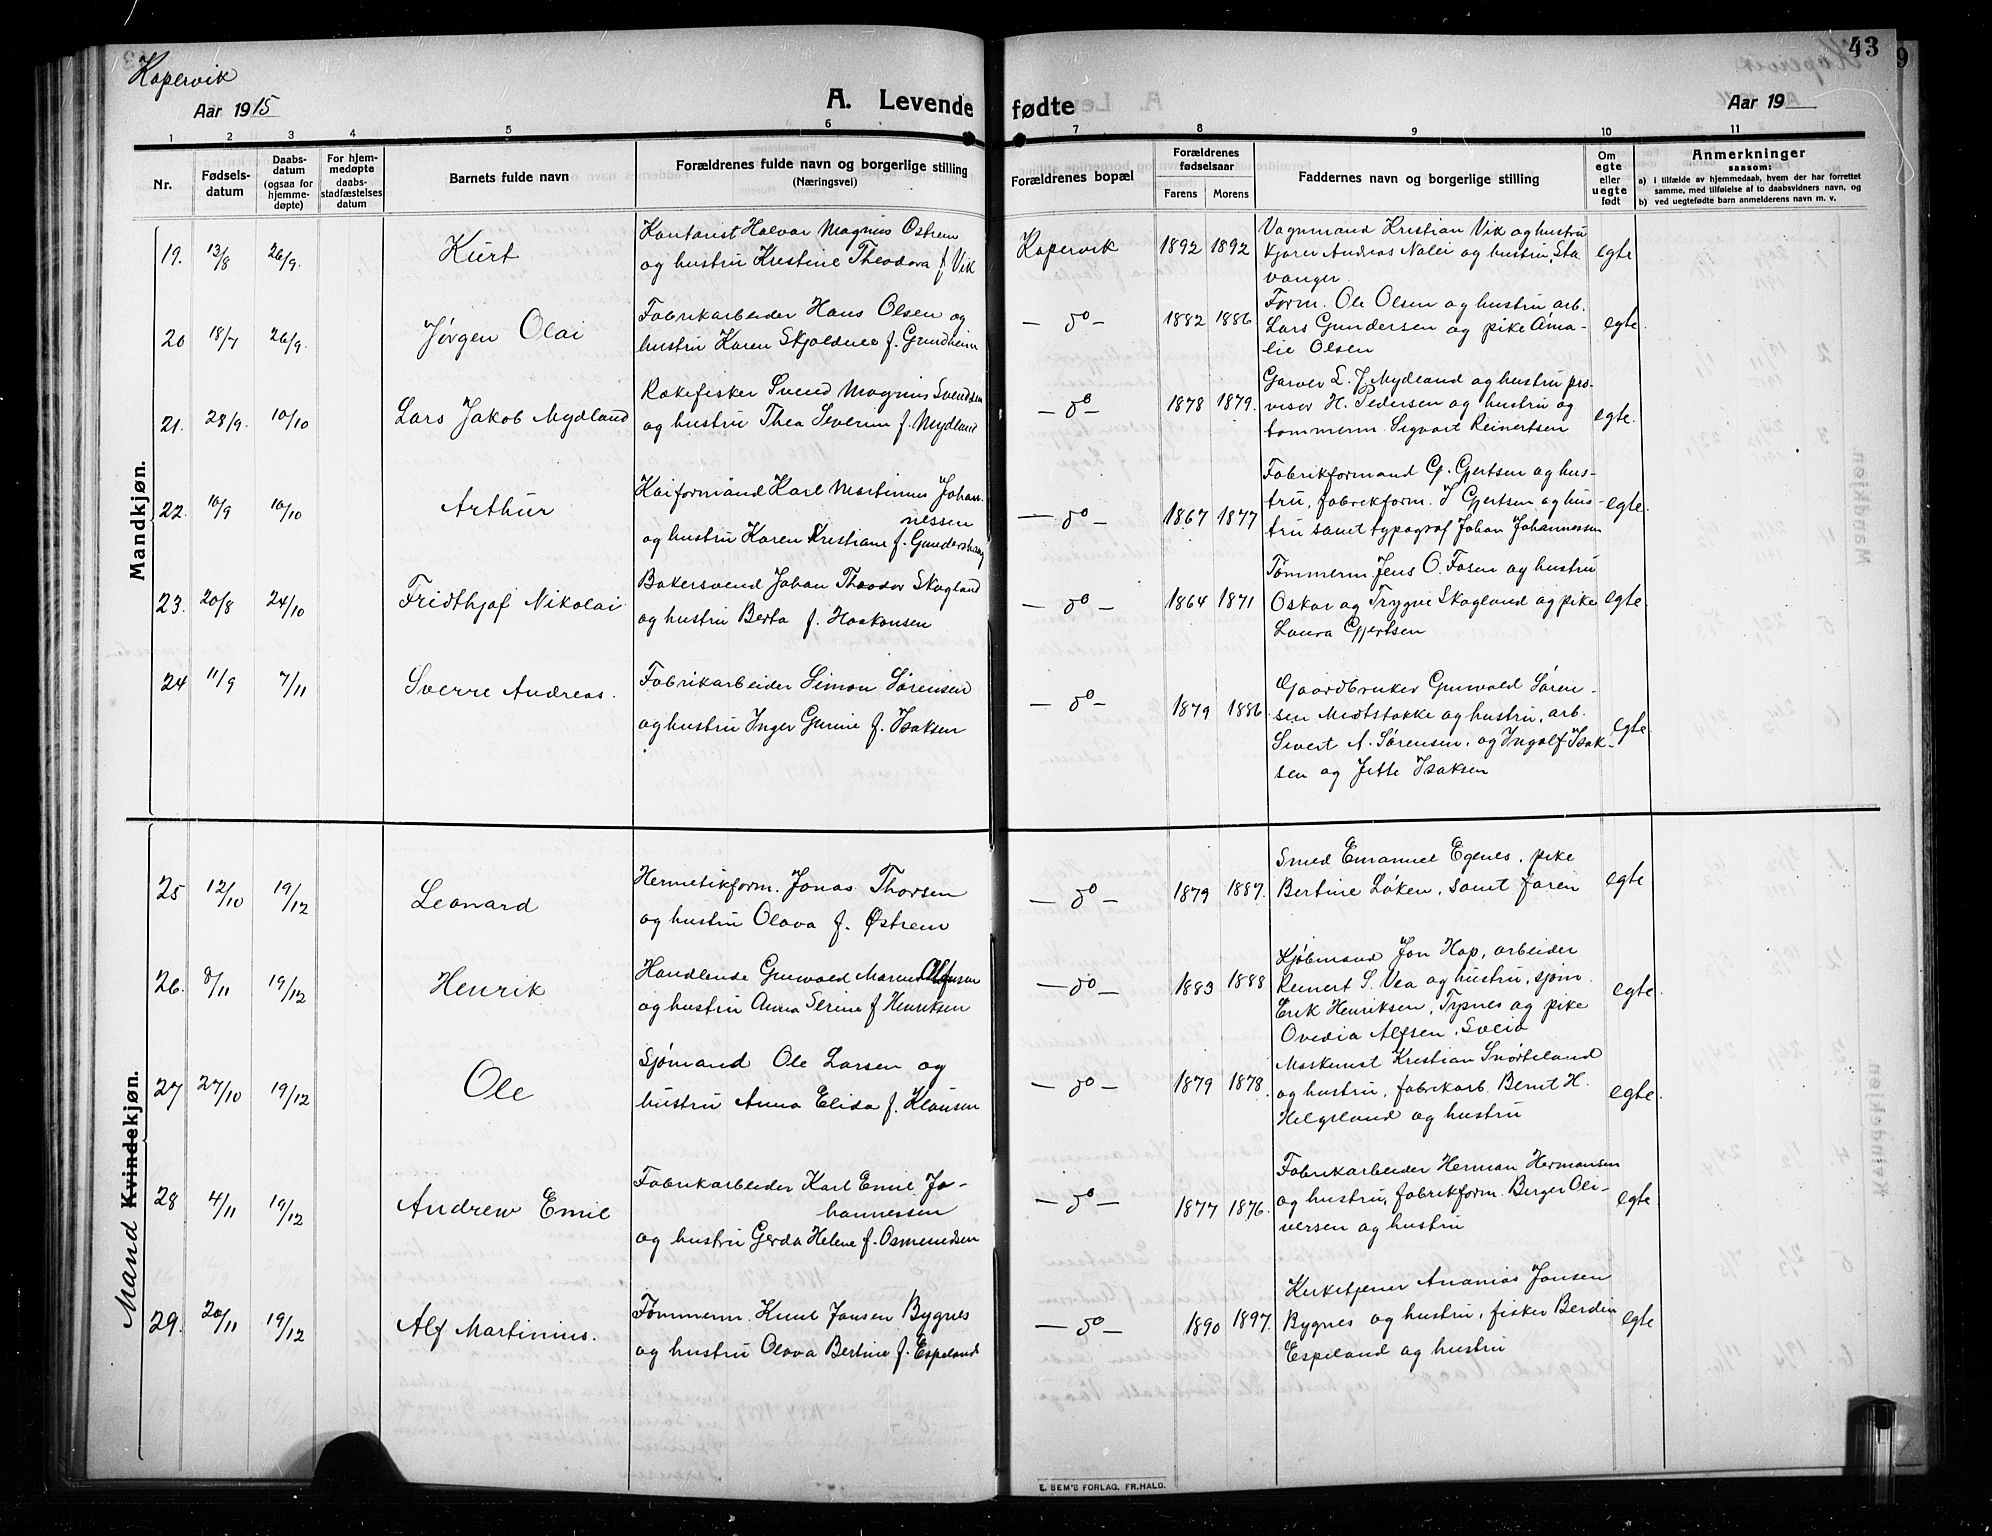 Kopervik
43
9
Aar 1915
A. Levende fødte
Aar 19
1 2 3 4 5 6 7 8 9 10 11
Nr.
Fødsels-
datum
Daabs-
datum
(ogsaa for
hjemme-
døpte)
For hjem-
medøpte
daabs-
stadfæstelses
datum
Barnets fulde navn
Forældrenes fulde navn og borgerlige stilling
(Næringsvei)
Forældrenes bopæl
Forældrenes
fødselsaar
Farens
Morens
Faddernes navn og borgerlige stilling
Om
egte
eller
uegte
født
Anmerkninger
saasom:
a) i tilfælde av hjemmedaab, hvem der har forrettet
samme, med tilføielse af to daabsvidners navn, og
b) ved uegtefødte barn anmelderens navn m. v.
Mandkjøn.
19. 13/8 26/9. Kurt
Kontorist Halvor Magnus Ostrem
og hustru Kristine Theodora f. Vik
Kopervik 1892 1892
Vognmand Kristian Vik og hustru
Kjører Andreas Nalei og hustru, Sta-
vanger
egte
20 18/7 26/9. Jørgen Olai
Fabrikarbeider Hans Olsen og
hustru Karen Skjoldnee f. Grindheim
— do — 1882 1886
Form. Ole Olsen og hustru arb.
Lars Gundersen og pike Ama-
lie Olsen
egte
21. 28/9. 10/10 Lars Jakob Mydland
Rækefisker Svend Magnus Svendsen
og hustru Thea Severine f. Mydland
— do — 1878 1879.
Garver L. J. Mydland og hustru pro-
visor H. Pedersen og hustru og
tømmerm. Sigvart Reinertsen
egte.
22. 10/9 10/10 Arthur
Kaiformand Karl Martinus Johan-
nessen
og hustru Karen Kristiane f. Gundershaug
— do — 1867 1877
Fabrikformand G. Gjertsen og hus-
tru, fabrikform. I Gjertsen og hus-
tru samt typograf Johan Johannessen
egte.
23. 20/8 24/10 Fridthjof Nikolai
Bakersvend Johan Theodor Skogland
og hustru Berta f. Haakonsen
— do — 1864 1871
Tømmerm Jens O. Fosen og hustru
Oskar og Trygve Skogland og pike
Laura Gjertsen
egte.
24 11/9 7/11 Sverre Andreas.
Fabrikarbeider Simon Sørensen
og hustru Inger Gurine f. Isaksen
— do — 1879 1886.
Gaardbruker Gunvald Søren-
sen Medtstokke og hustru, arb.
Sivert A. Sørensen, og Ingolf Isak-
sen og Jette Isaksen
egte.
Mand Kvindekjøn.
25 12/10 19/12 Leonard
Hermetikform. Jonas Thorsen
og hustru Olava f. Østrem
— do — 1879 1887.
Smed Emanuel Egenes, pike
Bertine Løken, samt faren
egte
26. 8/11 19/12 Henrik
Handlende Gunvald Marenus Alfsen
og hustru Anna Serine f Henriksen
— do — 1883 1888
Kjøbmand Jon Hop, arbeider
Reinert S. Vea og hustru, sjøm.
Erik Henriksen, Trynes og pike
Ovedia Alfsen,
egte.
27 27/10 19/12 Ole
Sjømand Ole Larsen og
hustru Anna Elida f. Klausen
— do — 1879 1878.
Maskinist Kristian Snørteland
og hustru, fabrikarb. Bernt H.
Helgeland og hustru
egte.
28 4/11 19/12 Andrew Emil
Fabrikarbeider Karl Emil Jo-
hannessen
og hustru Gerda Helene f. Osmundsen
— do — 1877 1876.
Fabrikarbeider Herman Hermansen
og hustru, fabrikform. Berger Oli-
versen og hustru
egte.
29. 20/11 19/12 Alf Martinius.
Tømmerm. Knut Jansen Bygnes
og hustru Olava Bertine f. Espeland
— do — 1890 1897.
Kirketjener Ananias Jansen
Bygnes og hustru, fisker Berdin
Espeland og hustru
egte
E. SEM'S FORLAG, FR.HALD.